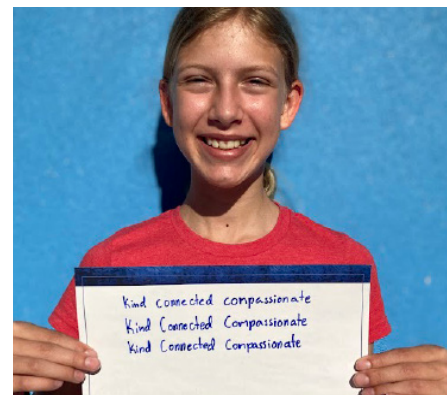 Kind connected compassionate
Kind Connected Compassionate
Kind Connected Compassionate